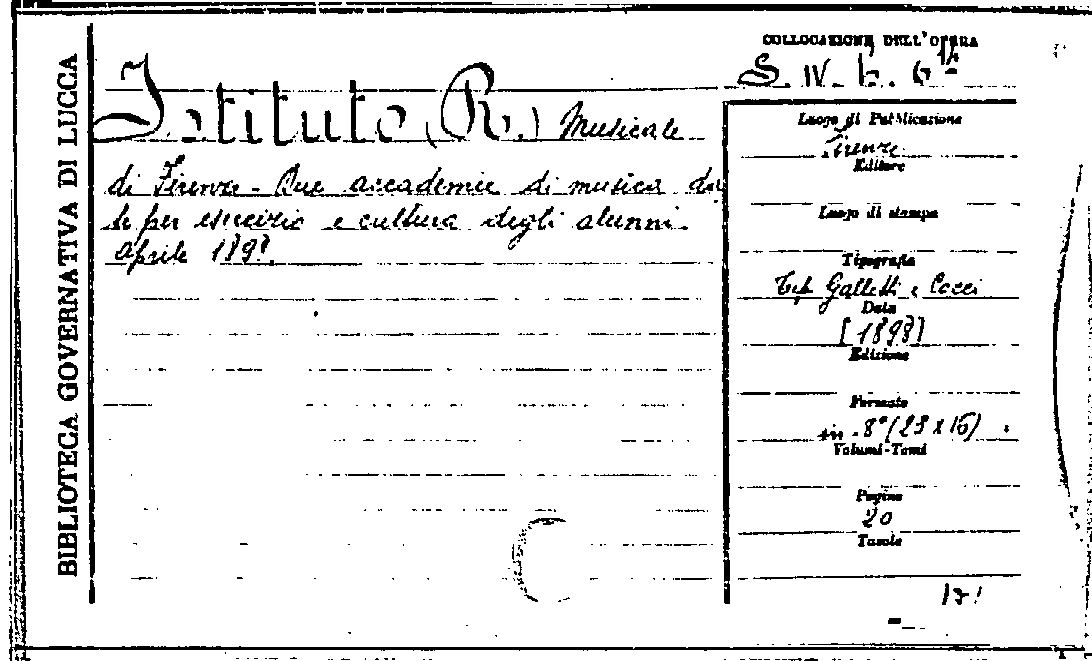 BIBLIOTECA GOVERNATIVA DI LUCCA
COLLOCAZIONE DELL'OPERA
S. IV. b. 6
Istituto (R.) Musicale
di Firenze - Due accademie di musica da
te per esercizio e cultura degli alunni.
Aprile 1898.
Luogo di Pubblicazione
Firenze
Editore
Luogo di stampa
Tipografia
Tip. Galletti e Cocci
Data
[1898]
Edizione
Formato
in - 8° (23 x 16)
Volumi-Tomi
Pagine
20
Tavole